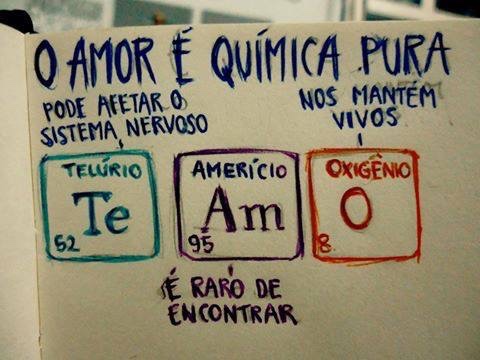 O AMOR É QUÍMICA PURA
PODE AFETAR O
SISTEMA NERVOSO
NOS MANTÉM
VIVOS
TELÚRIO
Te
52
AMERÍCIO
Am
95
OXIGÊNIO
O
8
É RARO DE
ENCONTRAR